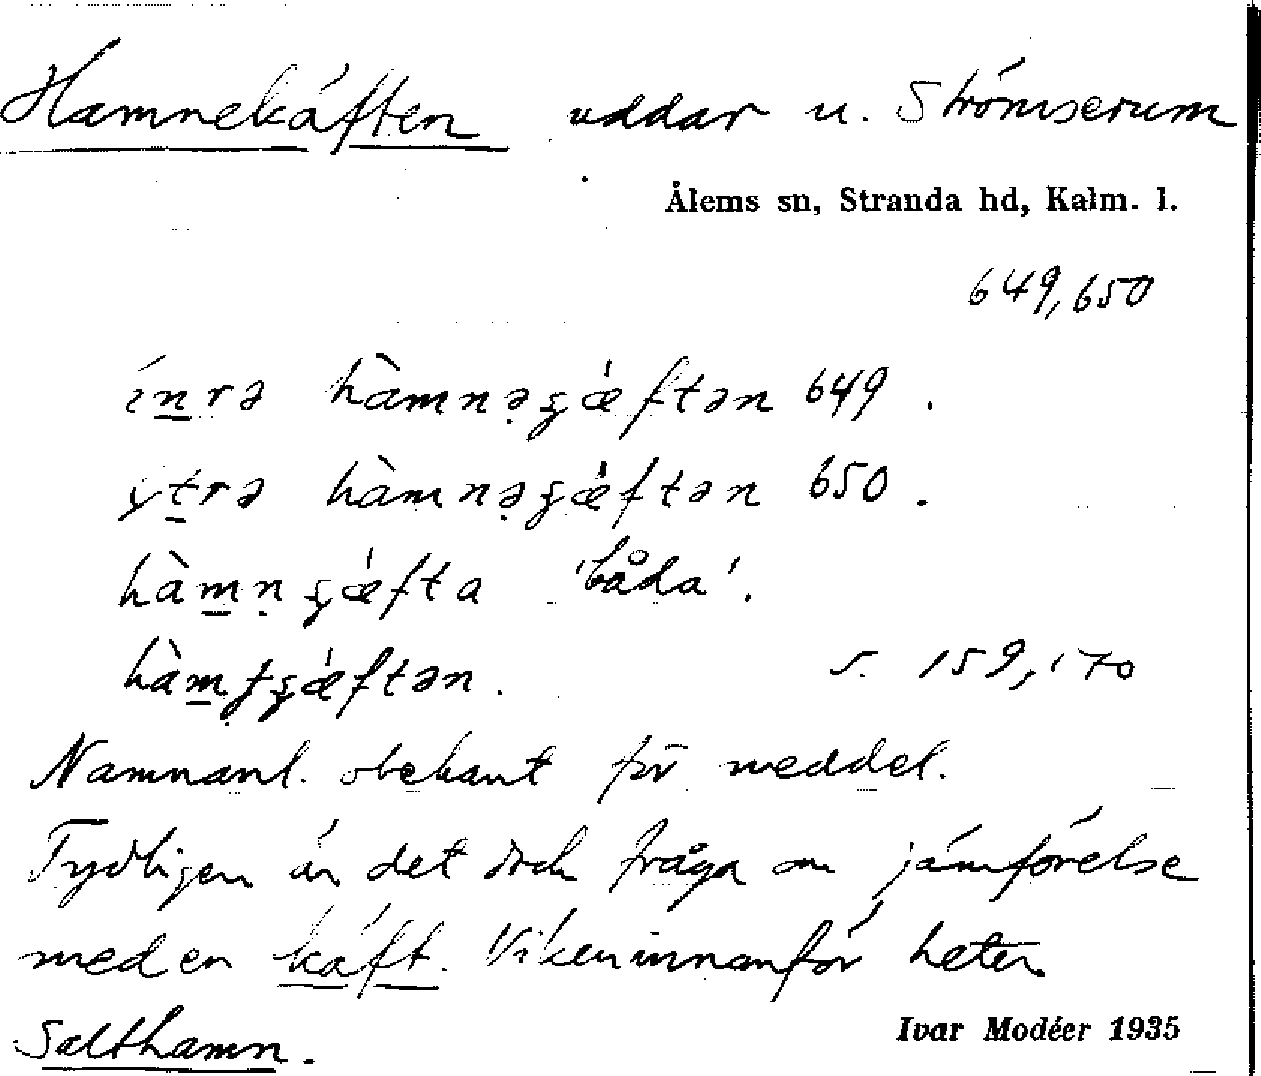 Hamnekäften uddar u. Strömserum
Ålems sn, Stranda hd, Kalm. l.
649,650
ínrə hàmnəʂǽftən 649.
ytrə hàmnəʂǽftən 650.
hàmnʂǽfta 'båda'.
ʂǽftən. s. 159,170
Namnanl. obekant för meddel.
Tydligen är det dock fråga om jämförelse
med en käft. Viken innanför heter
Salthamn.
Ivar Modéer 1935